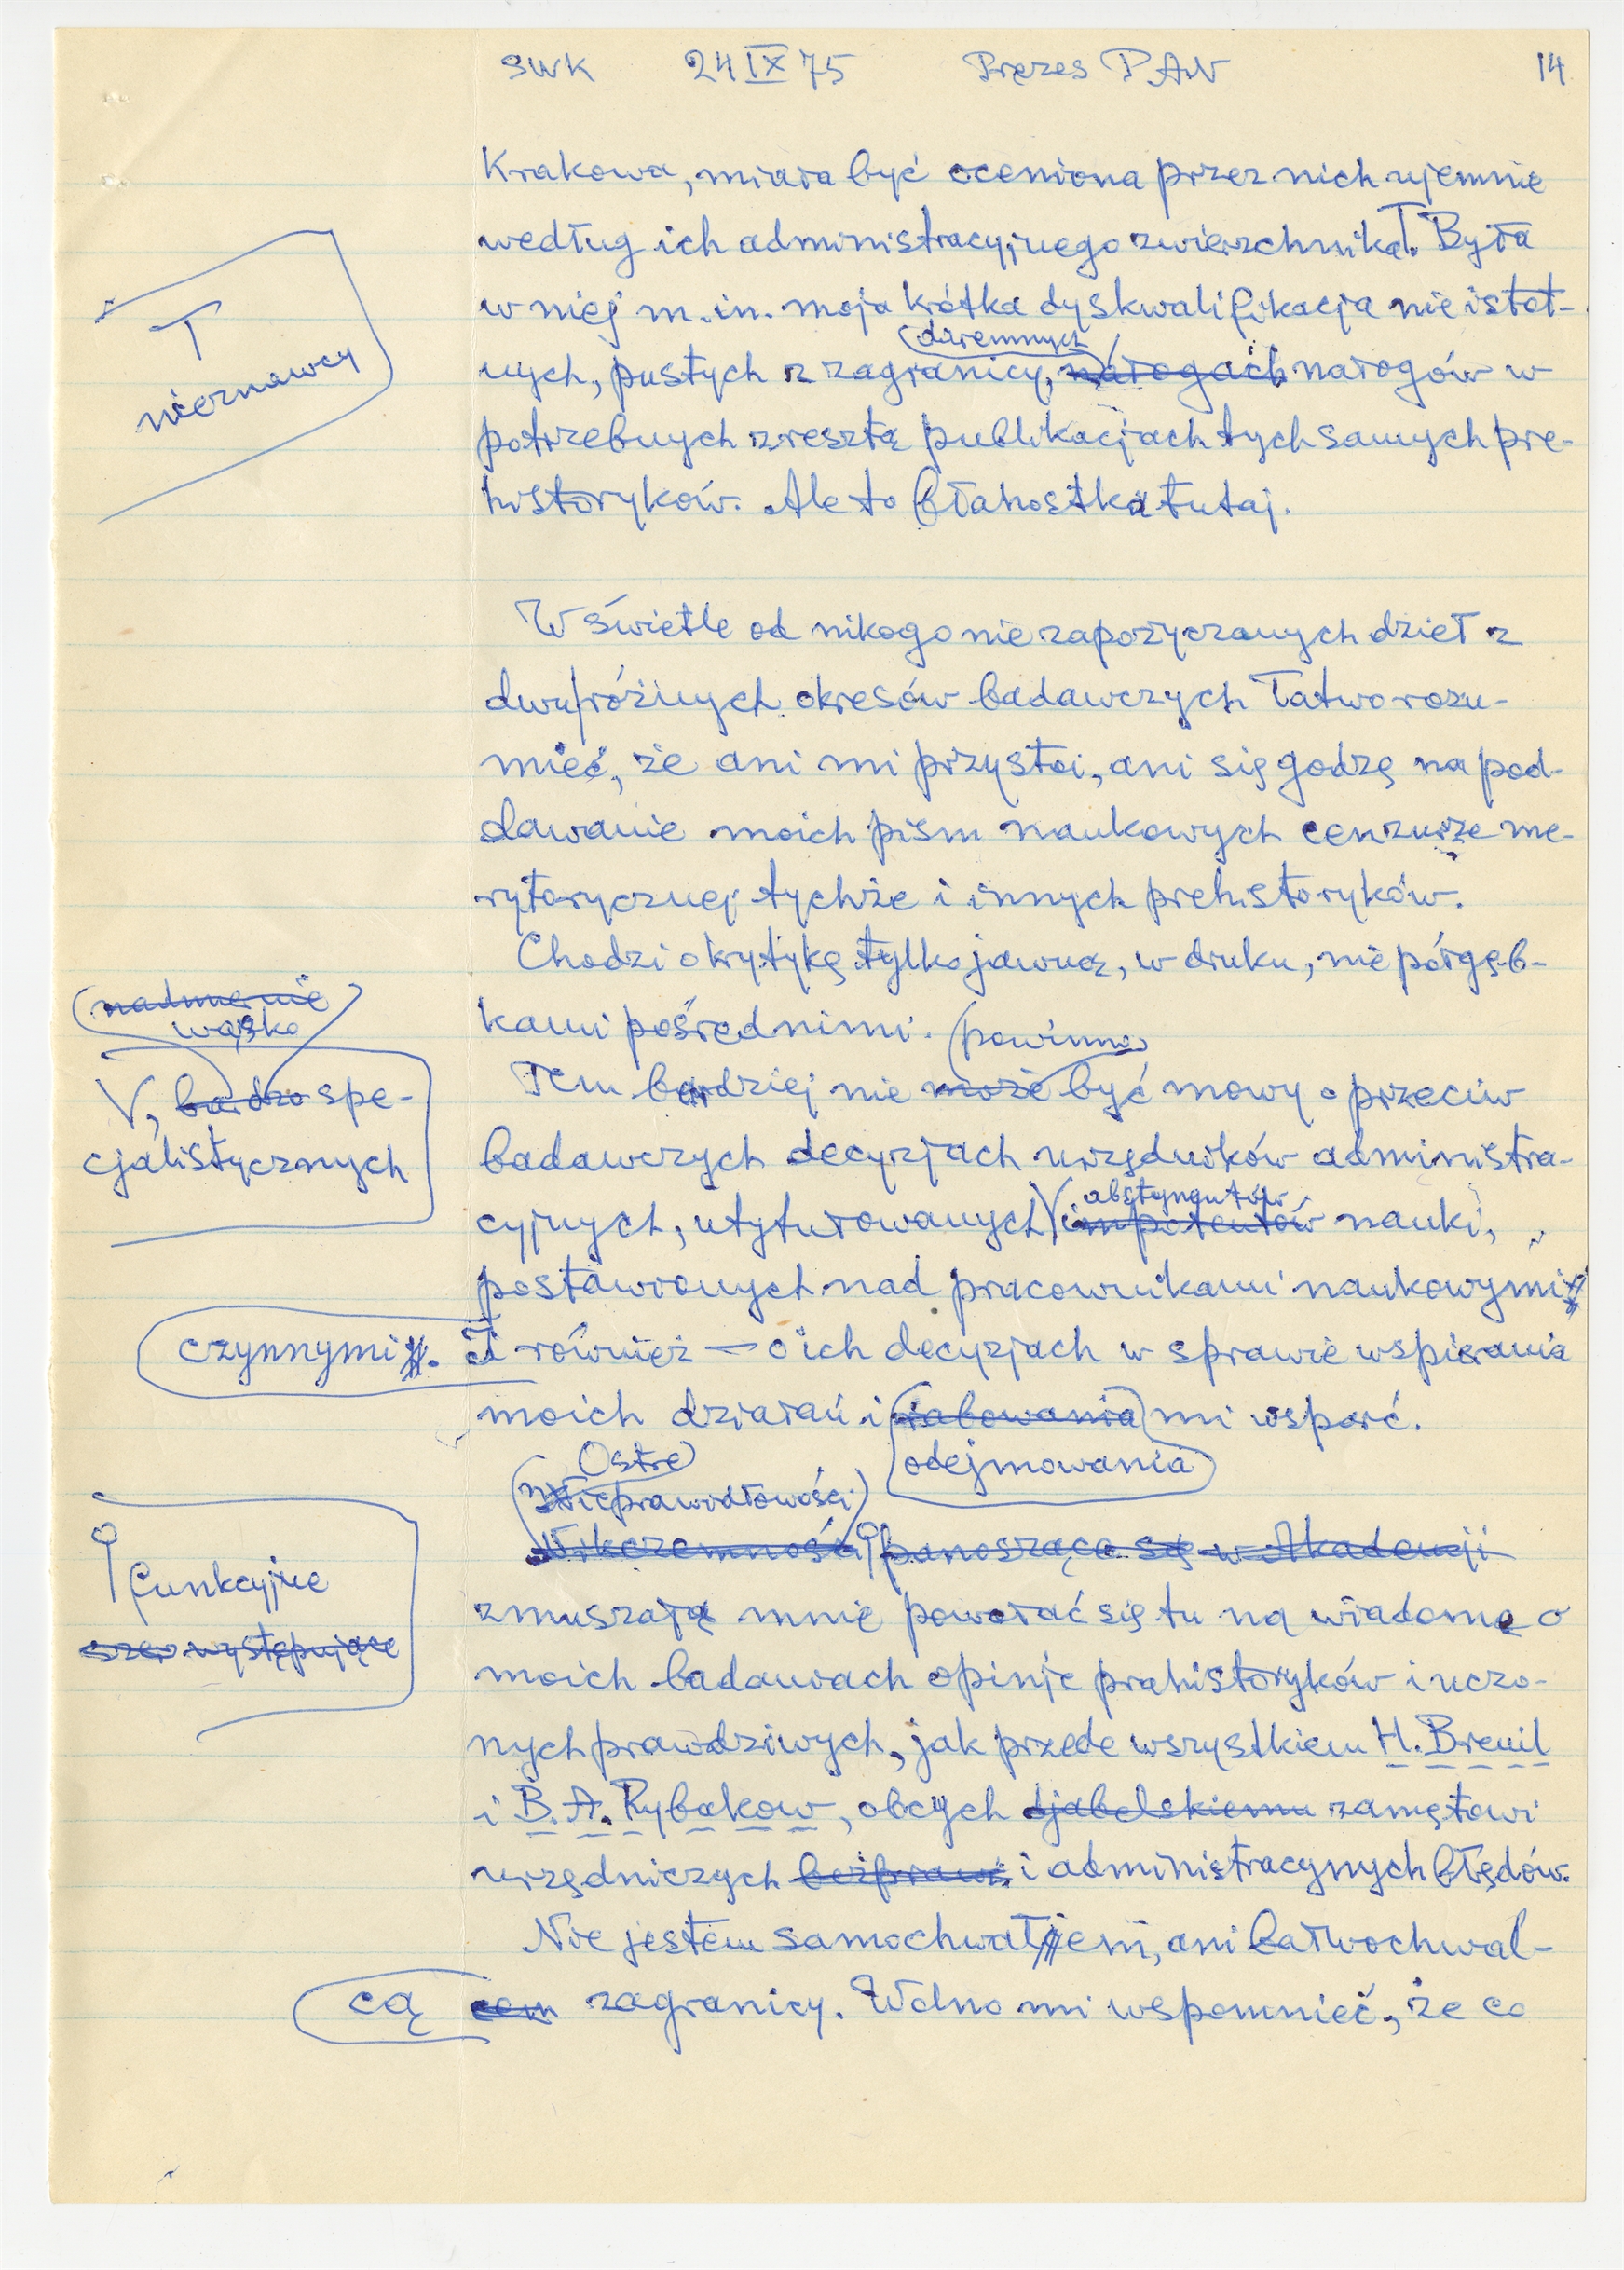 SWK 24 IX 75 Prezes PAN 14
Krakowa, miała być oceniona przez nich ujemnie
według ich administracyjnego zwierzchnika T. Była
w niej m.in. moja krótka dyskwalifikacja nieistot-
(dziennych
nych, pustych z zagranicy, nałogach nałogów w
T
nieznawcy
potrzebnych zresztą publikacjach tych samych pre-
historyków. Ale to błahostka tutaj.
W świetle od nikogo nie zapożyczanych dzieł z
dwu różnych okresów badawczych łatwo rozu-
mieć, że ani mi przystoi, ani się godzę na pod-
dawanie moich pism naukowych cenzurze me-
rytorycznej tychże i innych prehistoryków.
Chodzi o krytykę tylko jawną, w druku, nie półgęb-
kami pośrednimi.
nadmiernie
wąsko
V, bardzo spe-
cjalistycznych
(powinno)
Tem bardziej nie może być mowy o przeciw
badawczych decyzjach urzędników administra-
abstynentów
cyjnych, utytułowanych V impotentów nauki,
postawionych nad pracownikami naukowymi
czynnymi. I również – o ich decyzjach w sprawie wspierania
moich działań i rabowania mi wsparć.
odejmowania
Ostre
nieprawidłowości
Nikczemności panosząca się w Akademji
funkcyjne
występujące
zmuszają mnie powołać się tu na wiadome o
moich badaniach opinje prahistoryków i uczo-
nych prawdziwych, jak przede wszystkiem H. Breuil
i B. A. Rybakow, obcych djabelskiemu zamętowi
urzędniczych bezprawi i administracyjnych błędów.
Nie jestem samochwałem, ani bałwochwal-
cą cem zagranicy. Wolno mi wspomnieć, że co